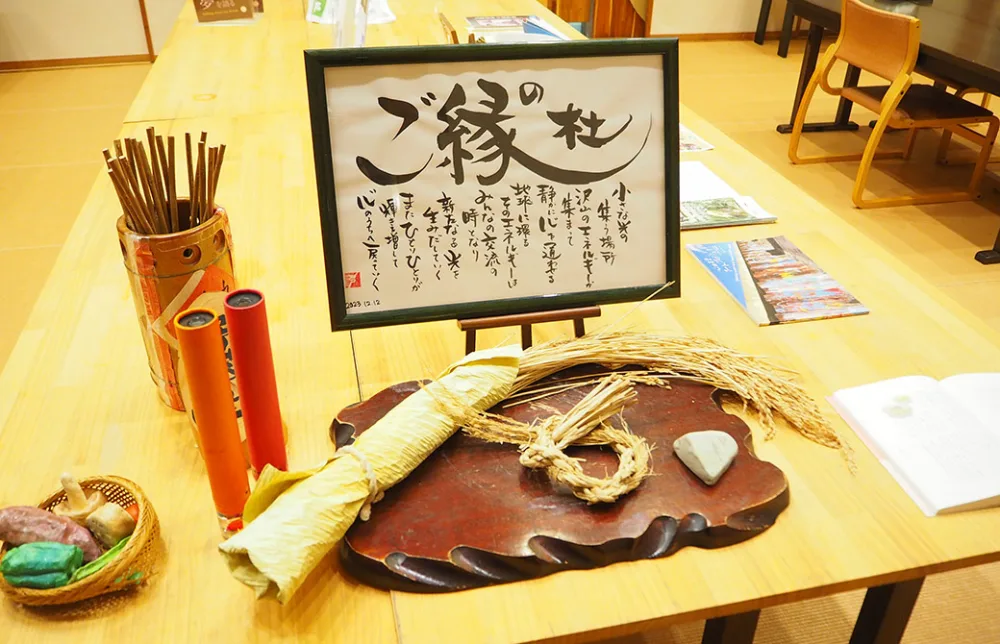 ご縁の杜
小さな光の
集う場所
沢山のエネルギーが
集まって
静かに心を通わせる
地球に還る
そのエネルギーは
みんなの交流の
時となり
新たなる光を
生みだしていく
またひとりひとりが
輝きを増して
心のうちへ戻っていく
2023.12.12